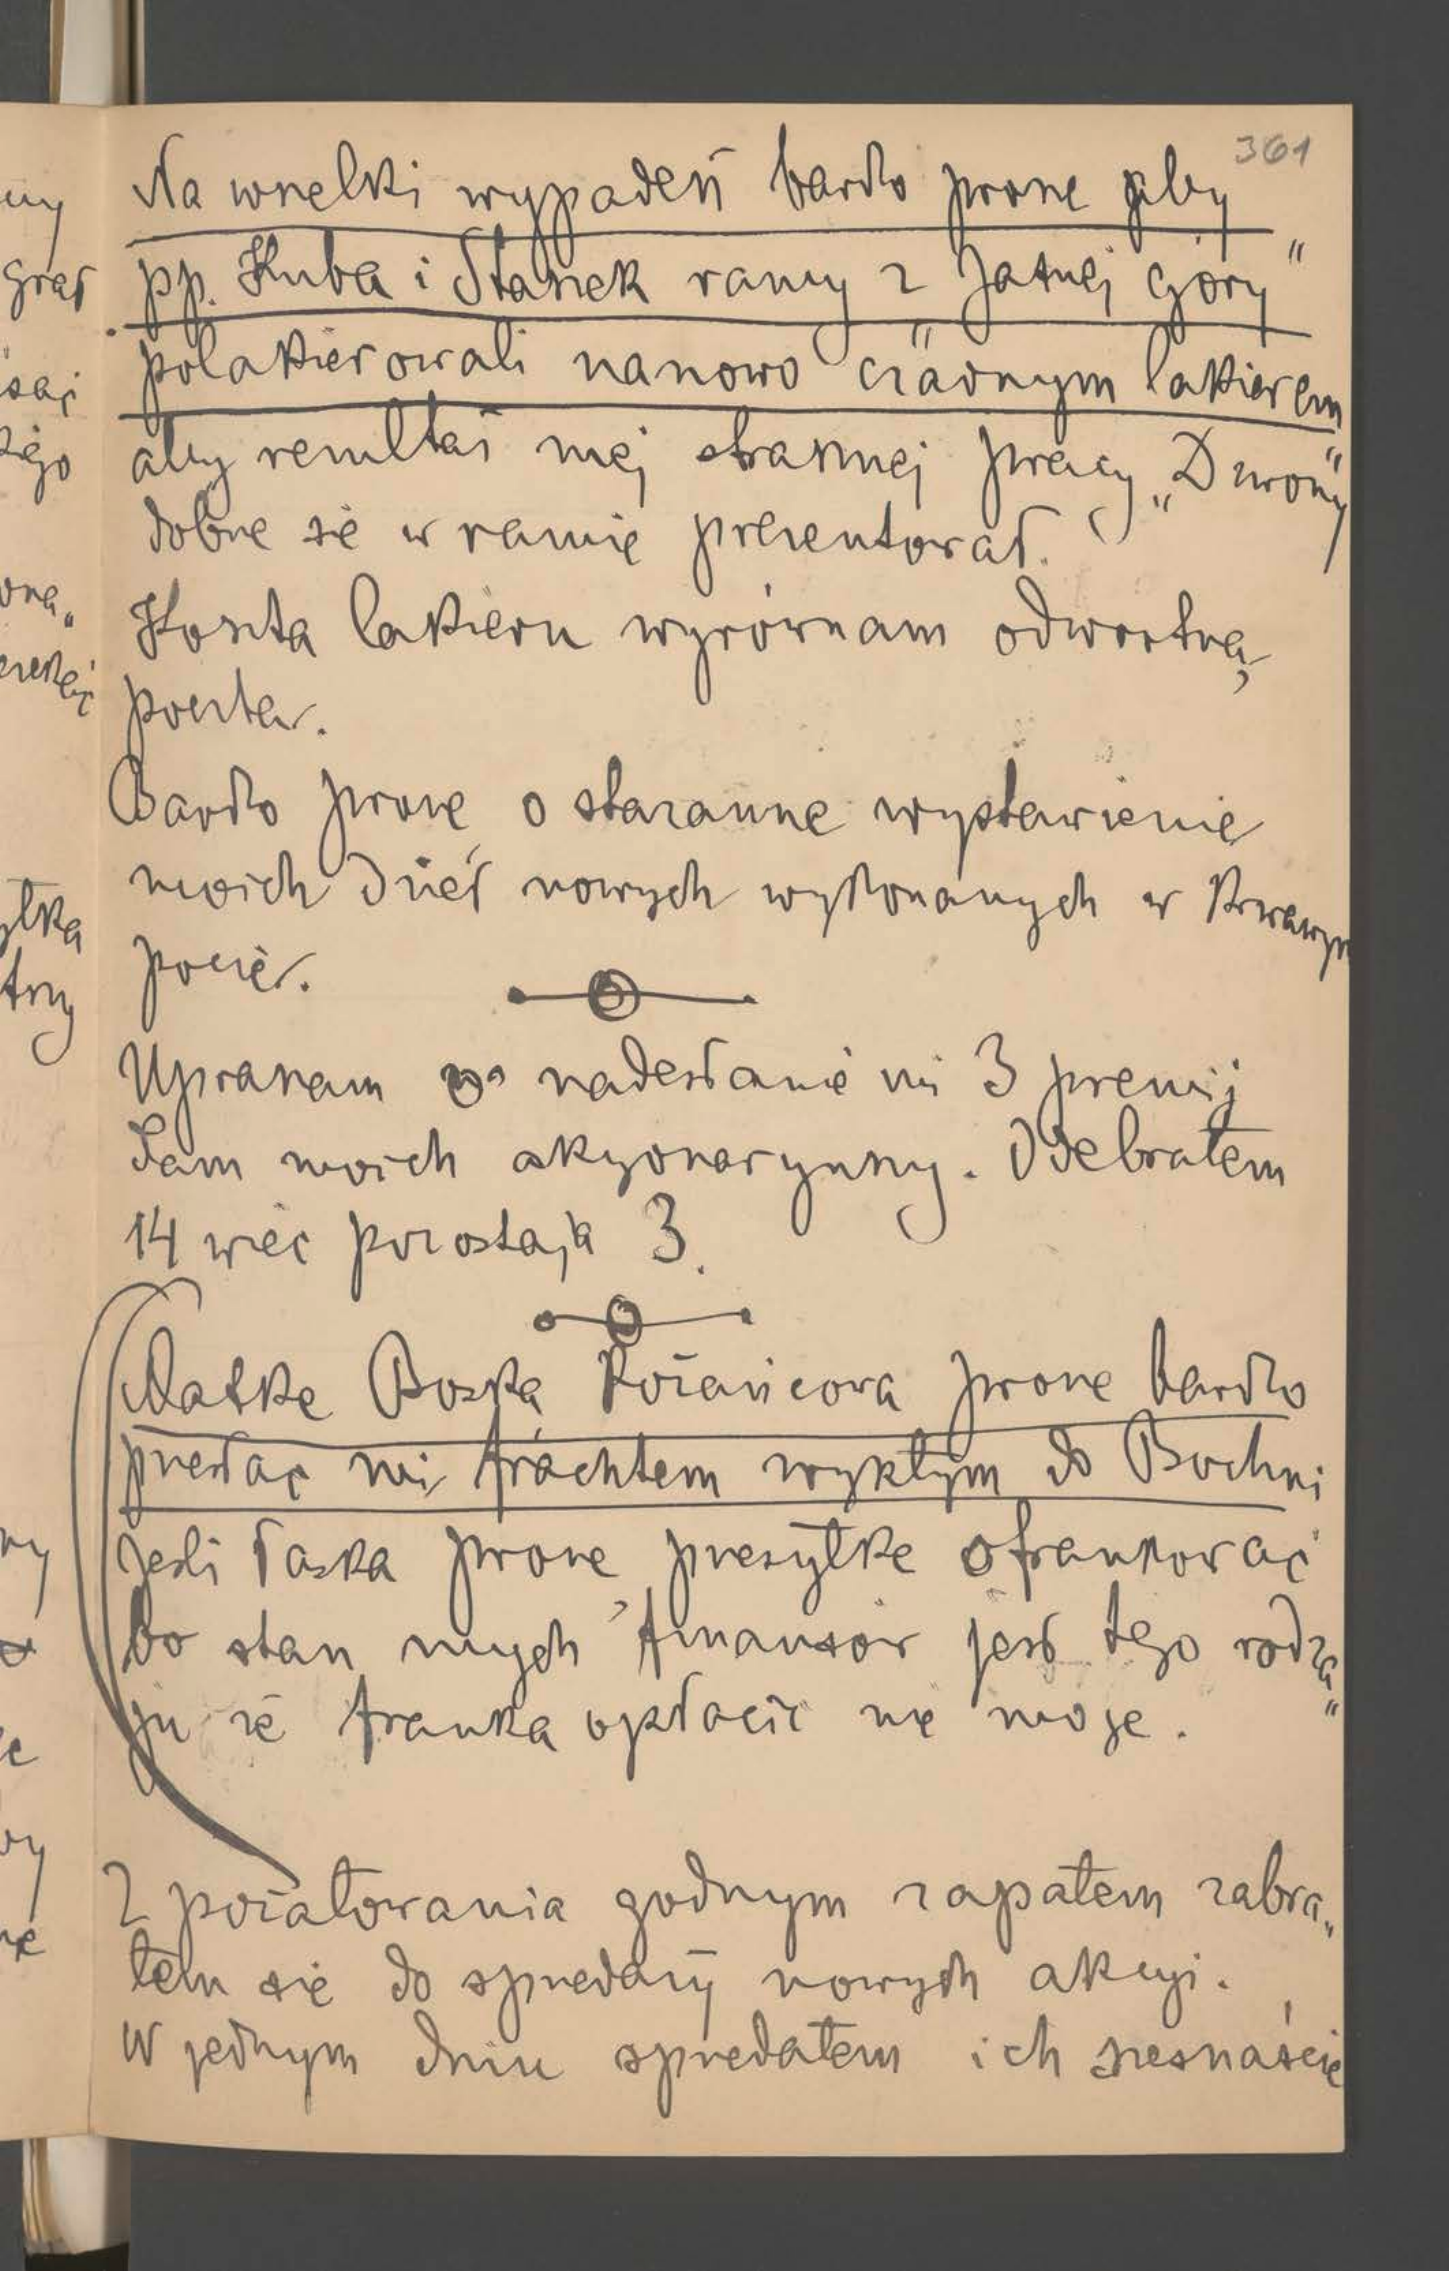 361
Na wszelki wypadek bardzo proszę aby
pp. Kuba i Stanek ramy z Jasnej Góry"
polakierowali nanowo czarnym lakierem
aby rezultat mej strasznej pracy „Dzwony"
dobrze się w ramie prezentował.
Koszta lakieru wyrównam odwrotną
pocztą.
Bardzo proszę o staranne wystawienie
moich dzieł nowych wykonanych w krwawym
pocie.
Upraszam o nadesłanie mi 3 premij
dam moich akcyonaryuszy. Odebrałem
14 więc pozostaja 3.
Matkę Boską Różańcową proszę bardzo
przesłać mi frachtem zwykłym do Bochni
jeśli łaska proszę przesyłkę ofrankować
bo stan mych finansów jest tego rodza„
ju że franka opłacić nie mogę.
Z pożałowania godnym zapałem zabra„
łem się do sprzedaży nowych akcyi.
W jednym dniu sprzedałem ich szesnaście